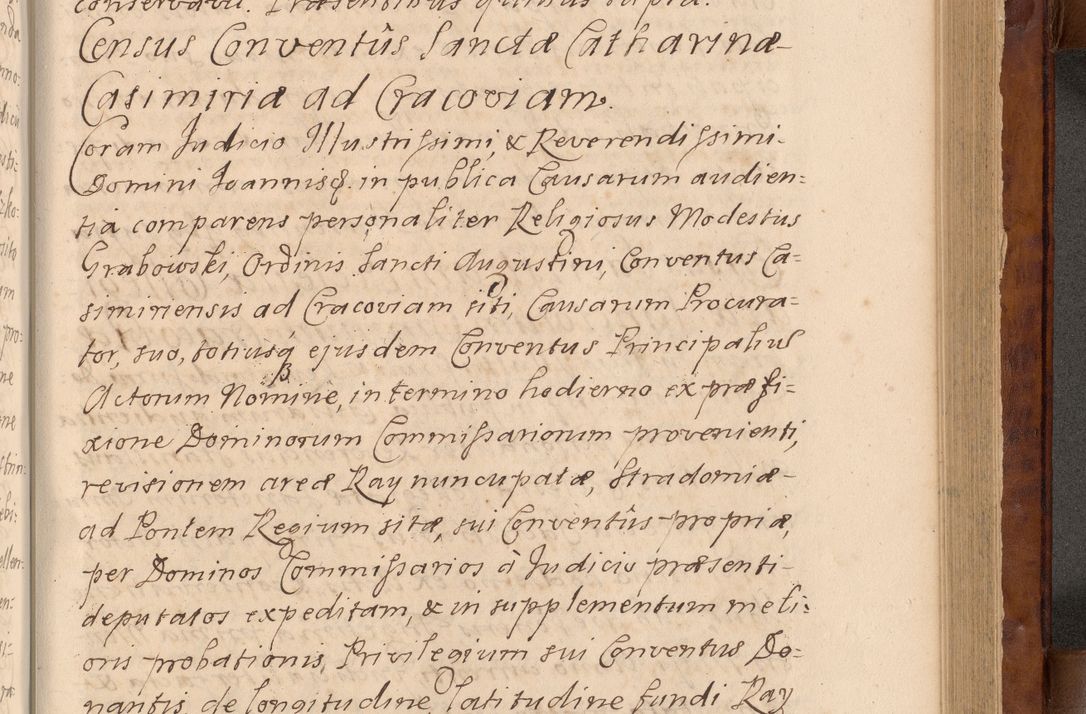 conservavit. Præsentibus quibus supra.
Census Conventûs Sanctæ Catharinæ
Casimiriæ ad Cracoviam.
Coram Judicio Illustrissimi, & Reverendissimi
Domini Joannisq. in publica Causarum audien=
tia comparens personaliter Religiosus Modestus
Grabowski, Ordinis Sancti Augustini, Conventus Ca=
simiriensis ad Cracoviam siti, Causarum Procura=
tor, suo, totiusq́ ejusdem Conventus Principalium
Actorum Nomine, in termino hodierno ex præfi=
xione Dominorum Commissariorum provenienti,
revisionem areæ Ray nuncupatæ, Stradomiæ
ad Pontem Regium sitæ, sui Conventûs propriæ,
per Dominos Commissarios à Judicio præsenti
deputatos expeditam, & in supplementum meli=
oris probationis, Privilegium sui Conventus Do=
nantis de longitudine, latitudine fundi Ray